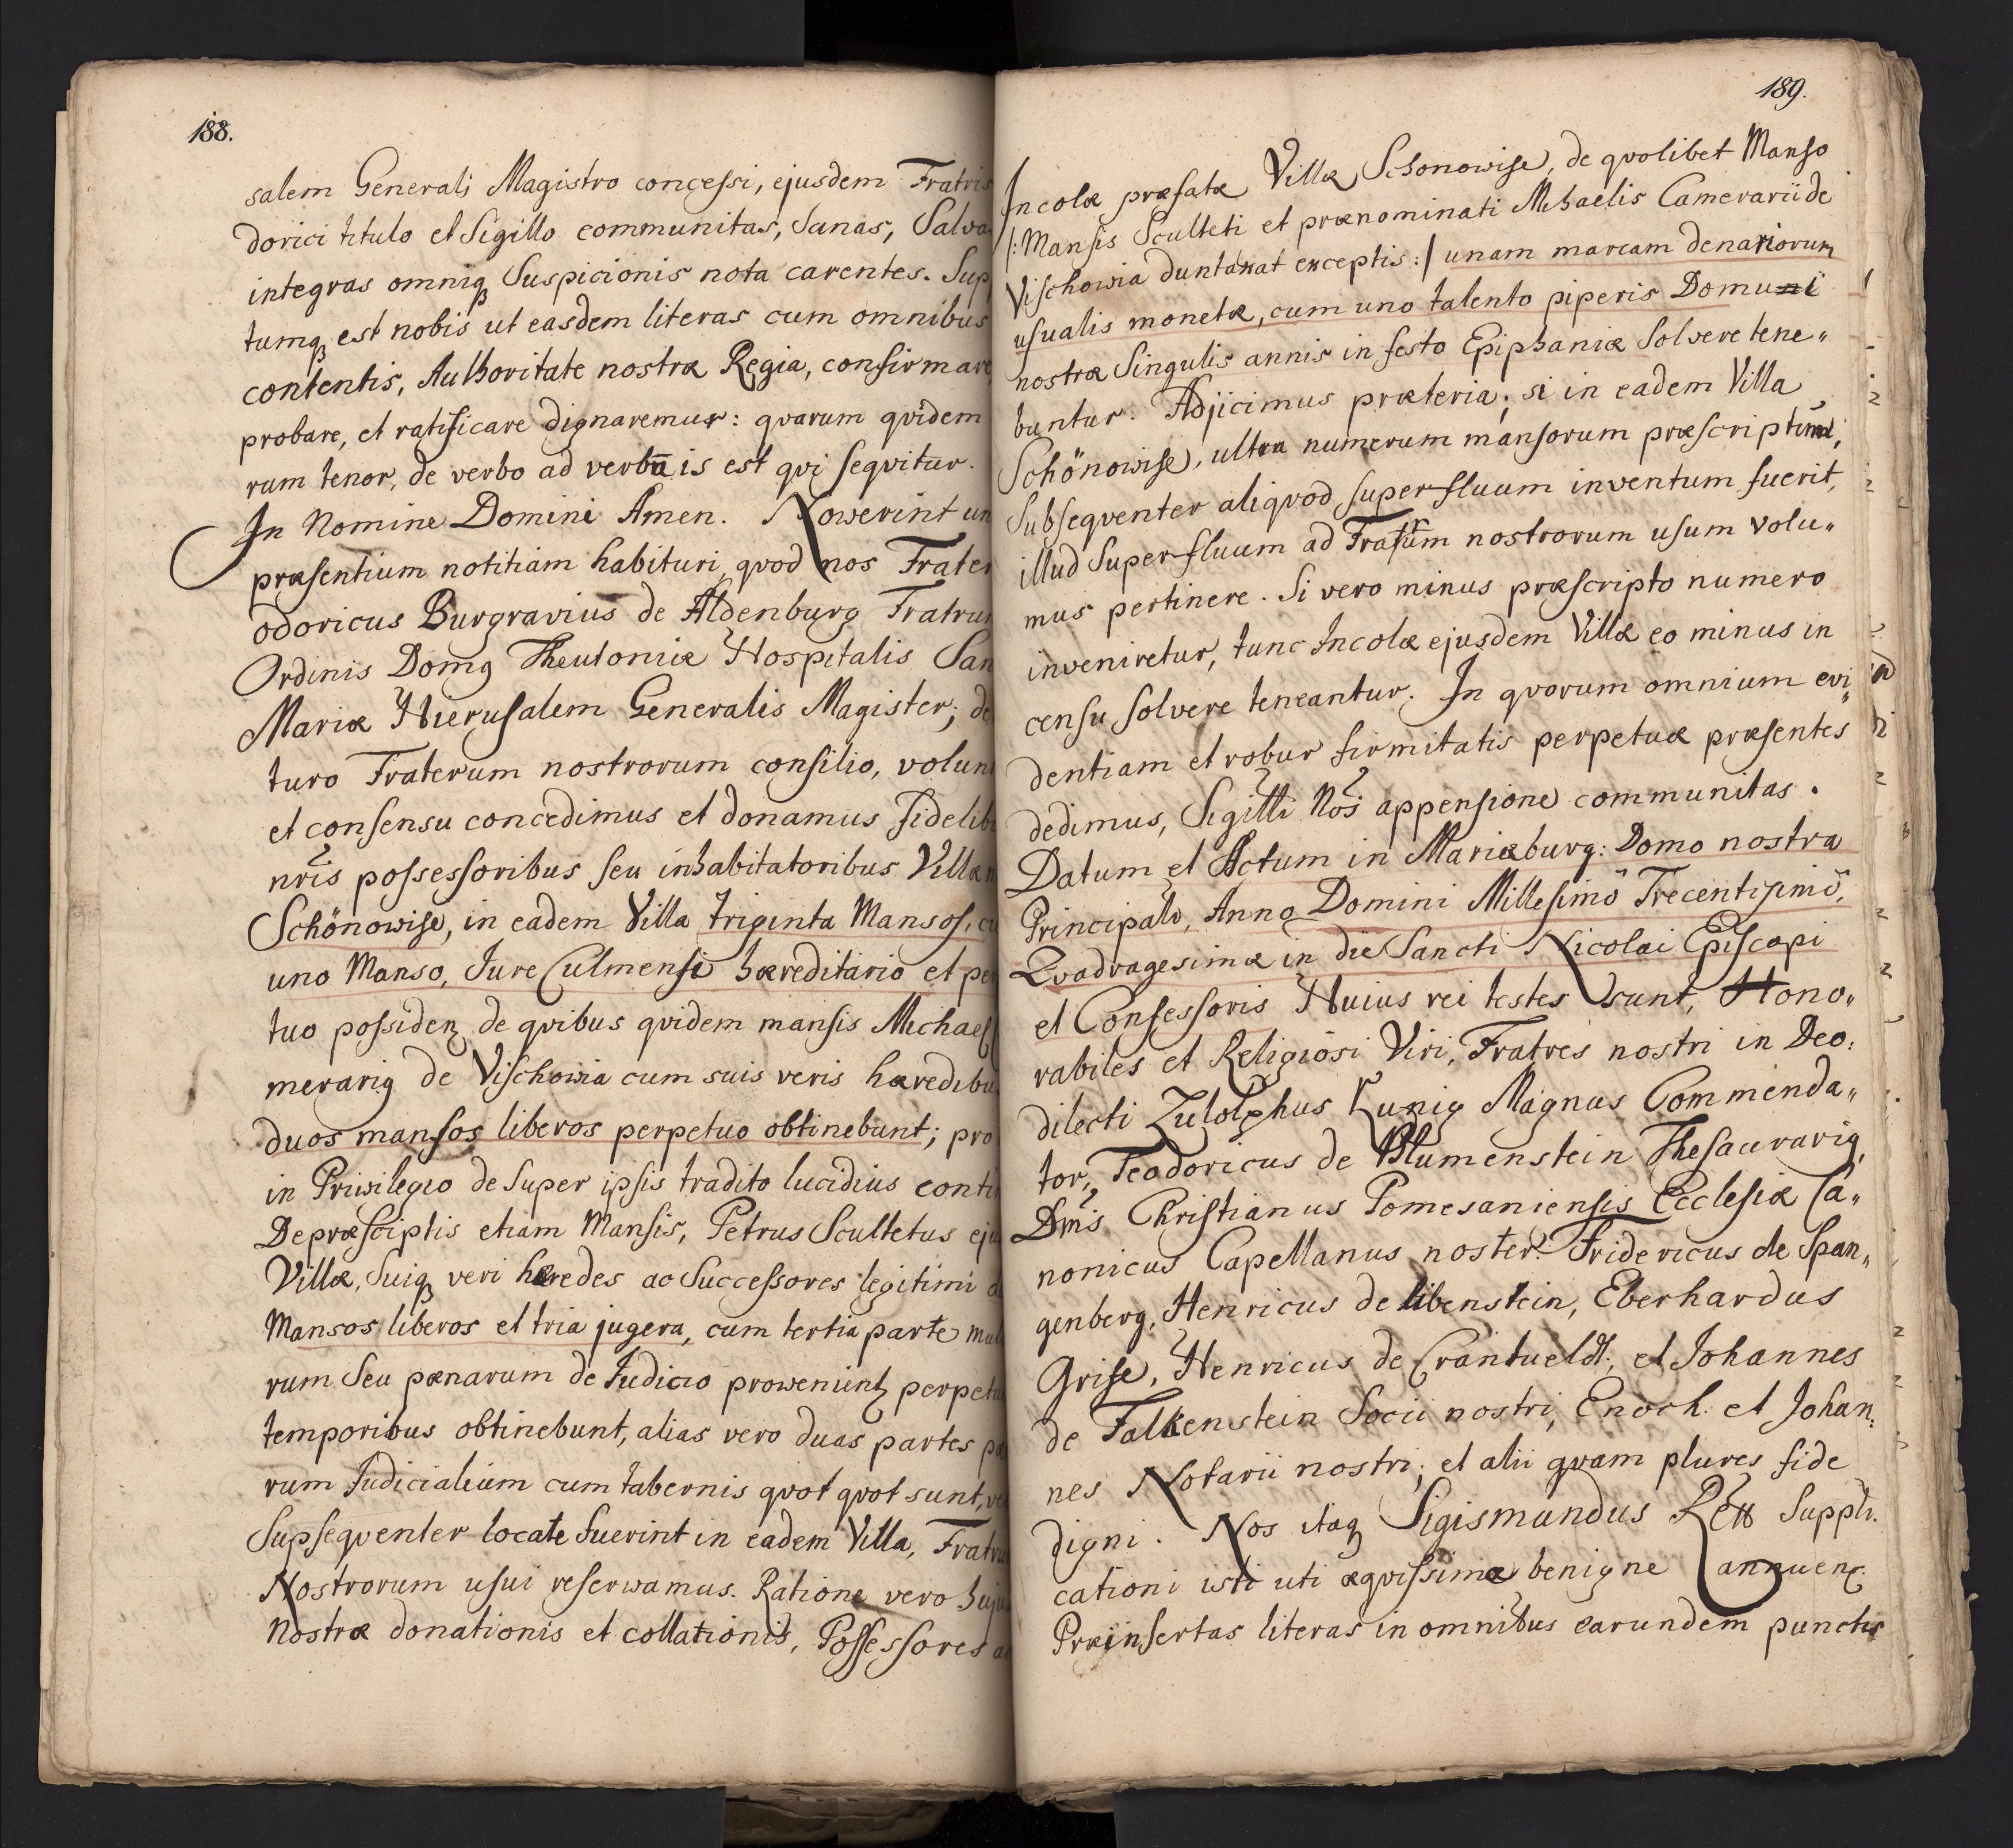 188.
salem Generali Magistro concessi, ejusdem Fratris
dorici titulo et Sigillo communitas, Sanas, Salva
integras omniq; Suspicionis nota carentes. Sup
tumq; est nobis ut easdem literas cum omnibus
contentis, Authoritate nostra Regia, confirmare
probare, et ratificare dignaremur: qvarum qvidem
rum tenor, de verbo ad verbū is est qvi seqvitur.
In Nomine Domini Amen. Nowerint un
præsentium notitiam habituri, qvod nos Frater
odoricus Burgravius de Aldenburg Fratrum
Ordinis Domq Theutoniæ Hospitalis San
Mariæ Hierusalem Generalis Magister; de
turo Fraterum nostrorum consilio, volun
et consensu concedimus et donamus fidelib
nrīs possessoribus seu inhabitatoribus Villæ n
Schönowise, in eadem Villa triginta Mansos, cu
uno Manso, Jure Culmensi hæreditario et per
tuo possidenz de qvibus qvidem mansis Michael
merariq de Vischowia cum suis veris hæredibu
duos mansos liberos perpetuo obtinebunt; pro
in Priwilegio de super ipsis tradito lucidius conti
De præsciptis etiam Mansis, Petrus Scultetus eju
Villæ, Suiq; veri hæredes ac Successores legitimi d
Mansos liberos et tria jugera, cum tertia parte mul
rum Seu pænarum de Judicio prowenientz perpetu
temporibus obtinebunt, alias vero duas partes pæ
rum Judicialium cum tabernis qvot qvot sunt, ve
Supseqventer locate fuerint in eadem Villa, Fratru
Nostrorum usui reserwamus. Ratione vero huju
Nostræ donationis et collationis, Possessores ac
189.
Incolæ præfatæ Villæ Schonowise, de qvolibet Manso
/: Mansis Sculteti et prænominati Mihaelis Camerarii de
Vischowia duntaxat exceptis :/ unam marcam denariorum
usualis monetæ, cum uno talento piperis Domui
nostræ Singulis annis in festo Epiphaniæ Solvere tene„
buntur. Adjicimus præteria; si in eadem Villa
Schönowise, ultra numerum mansorum præscriptum,
Subseqventer aliqvod superfluum inventum fuerit,
illud Superfluum ad Fratrum nostrorum usum volu„
mus pertinere. Si vero minus præscripto numero
inveniretur, tunc Incolæ ejusdem Villæ eo minus in
censu solvere teneantur. In qvorum omnium evi„
dentiam et robur firmitatis perpetuæ præsentes
dedimus, Sigilli Nōi appensione communitas.
Datum et Actum in Mariæburg: Domo nostra
Principali, Anno Domini Millesimō Trecentisimō,
Qvadragesimæ in die Sancti Nicolai Episcopi
et Confessoris Huius rei testes sunt, Hono„
rabiles et Religiosi Viri, Fratres nostri in Deo:
dilecti Zulolphus Kunig Magnus Commenda„
tor, Teodoricus de Blumenstein Thesaurariq,
Dm̄s Christianus Pomesaniensis Ecclesiæ Ca„
nonicus Capellanus noster. Fridericus de Span„
genberg, Henricus de libenstein, Eberhardus
Grise, Henricus de Crantueldt, et Johannes
de Falkenstein Socii nostri, Enoch. et Johan:
nes Notarii nostri; et alii qvam plures fide
digni. Nos itaq; Sigismundus Rex Suppli.
cationi isti uti æqvissimæ benigne annuenz
Præinsertas literas in omnibus earundem punctis